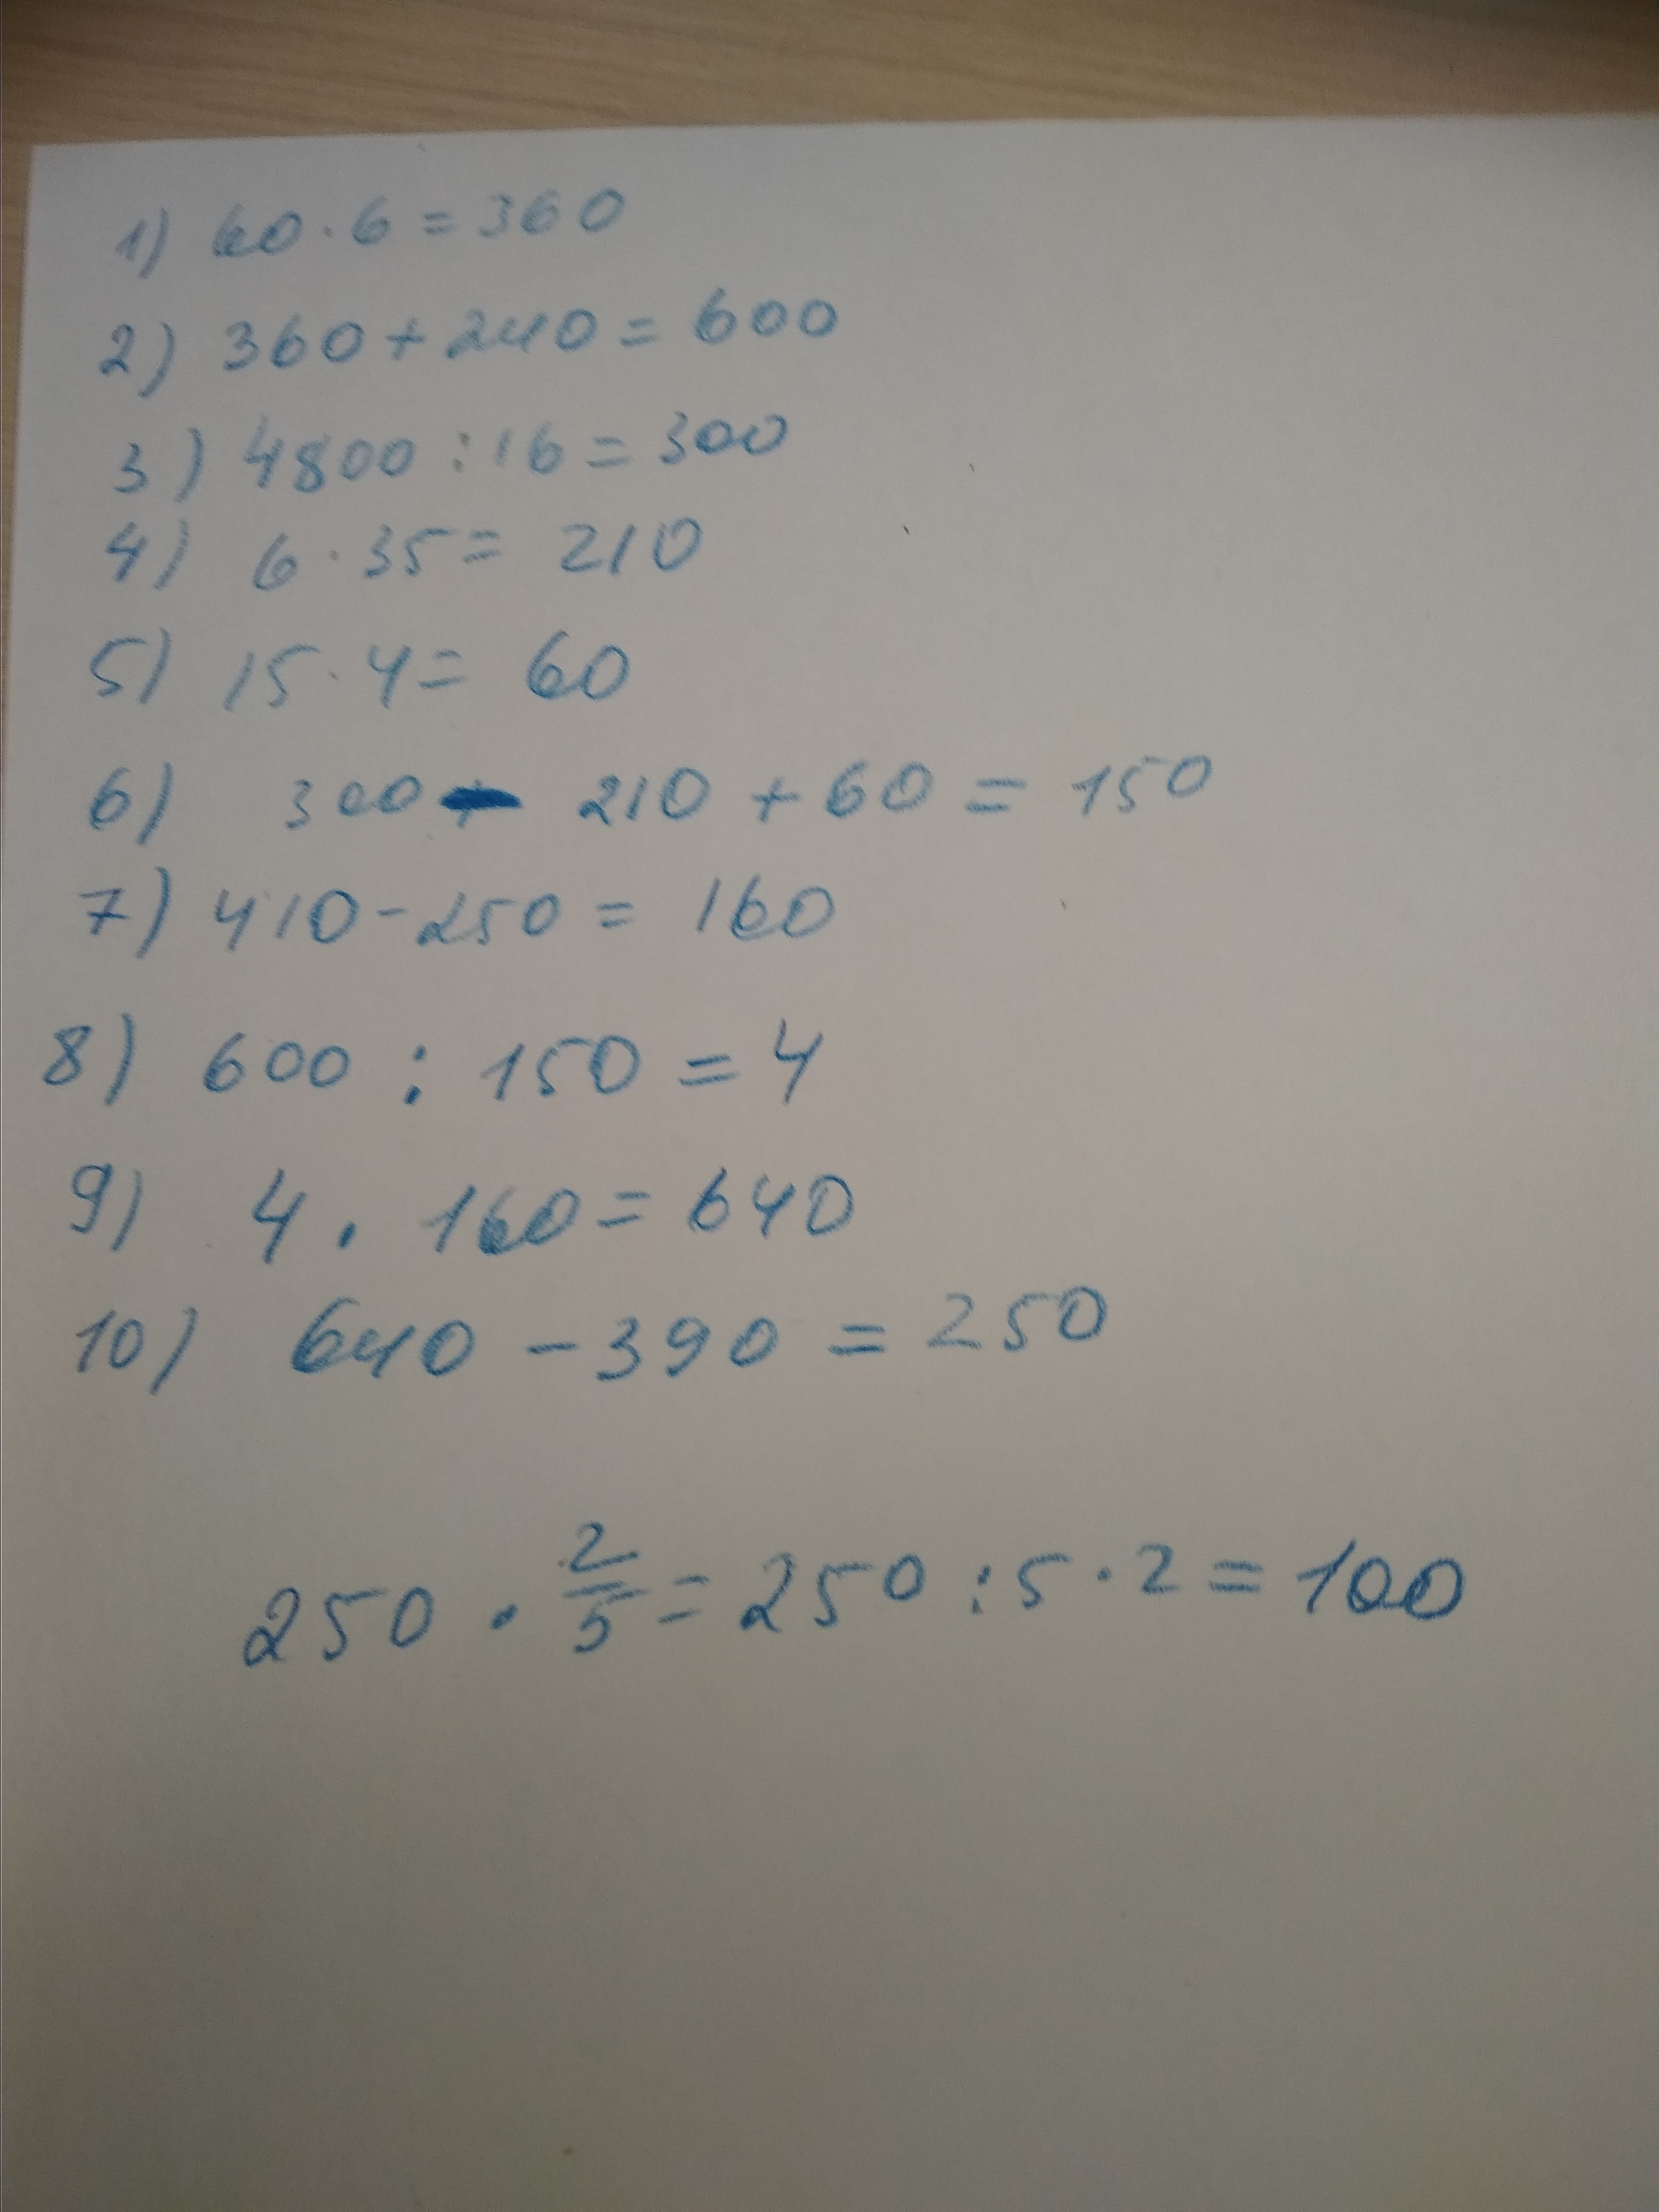 1) 60 · 6 = 360
2) 360 + 240 = 600
3) 4800 : 16 = 300
4) 6 · 35 = 210
5) 15 · 4 = 60
6) 300 - 210 + 60 = 150
7) 410 - 250 = 160
8) 600 : 150 = 4
9) 4 · 160 = 640
10) 640 - 390 = 250
250 · 2/5 = 250 : 5 · 2 = 100